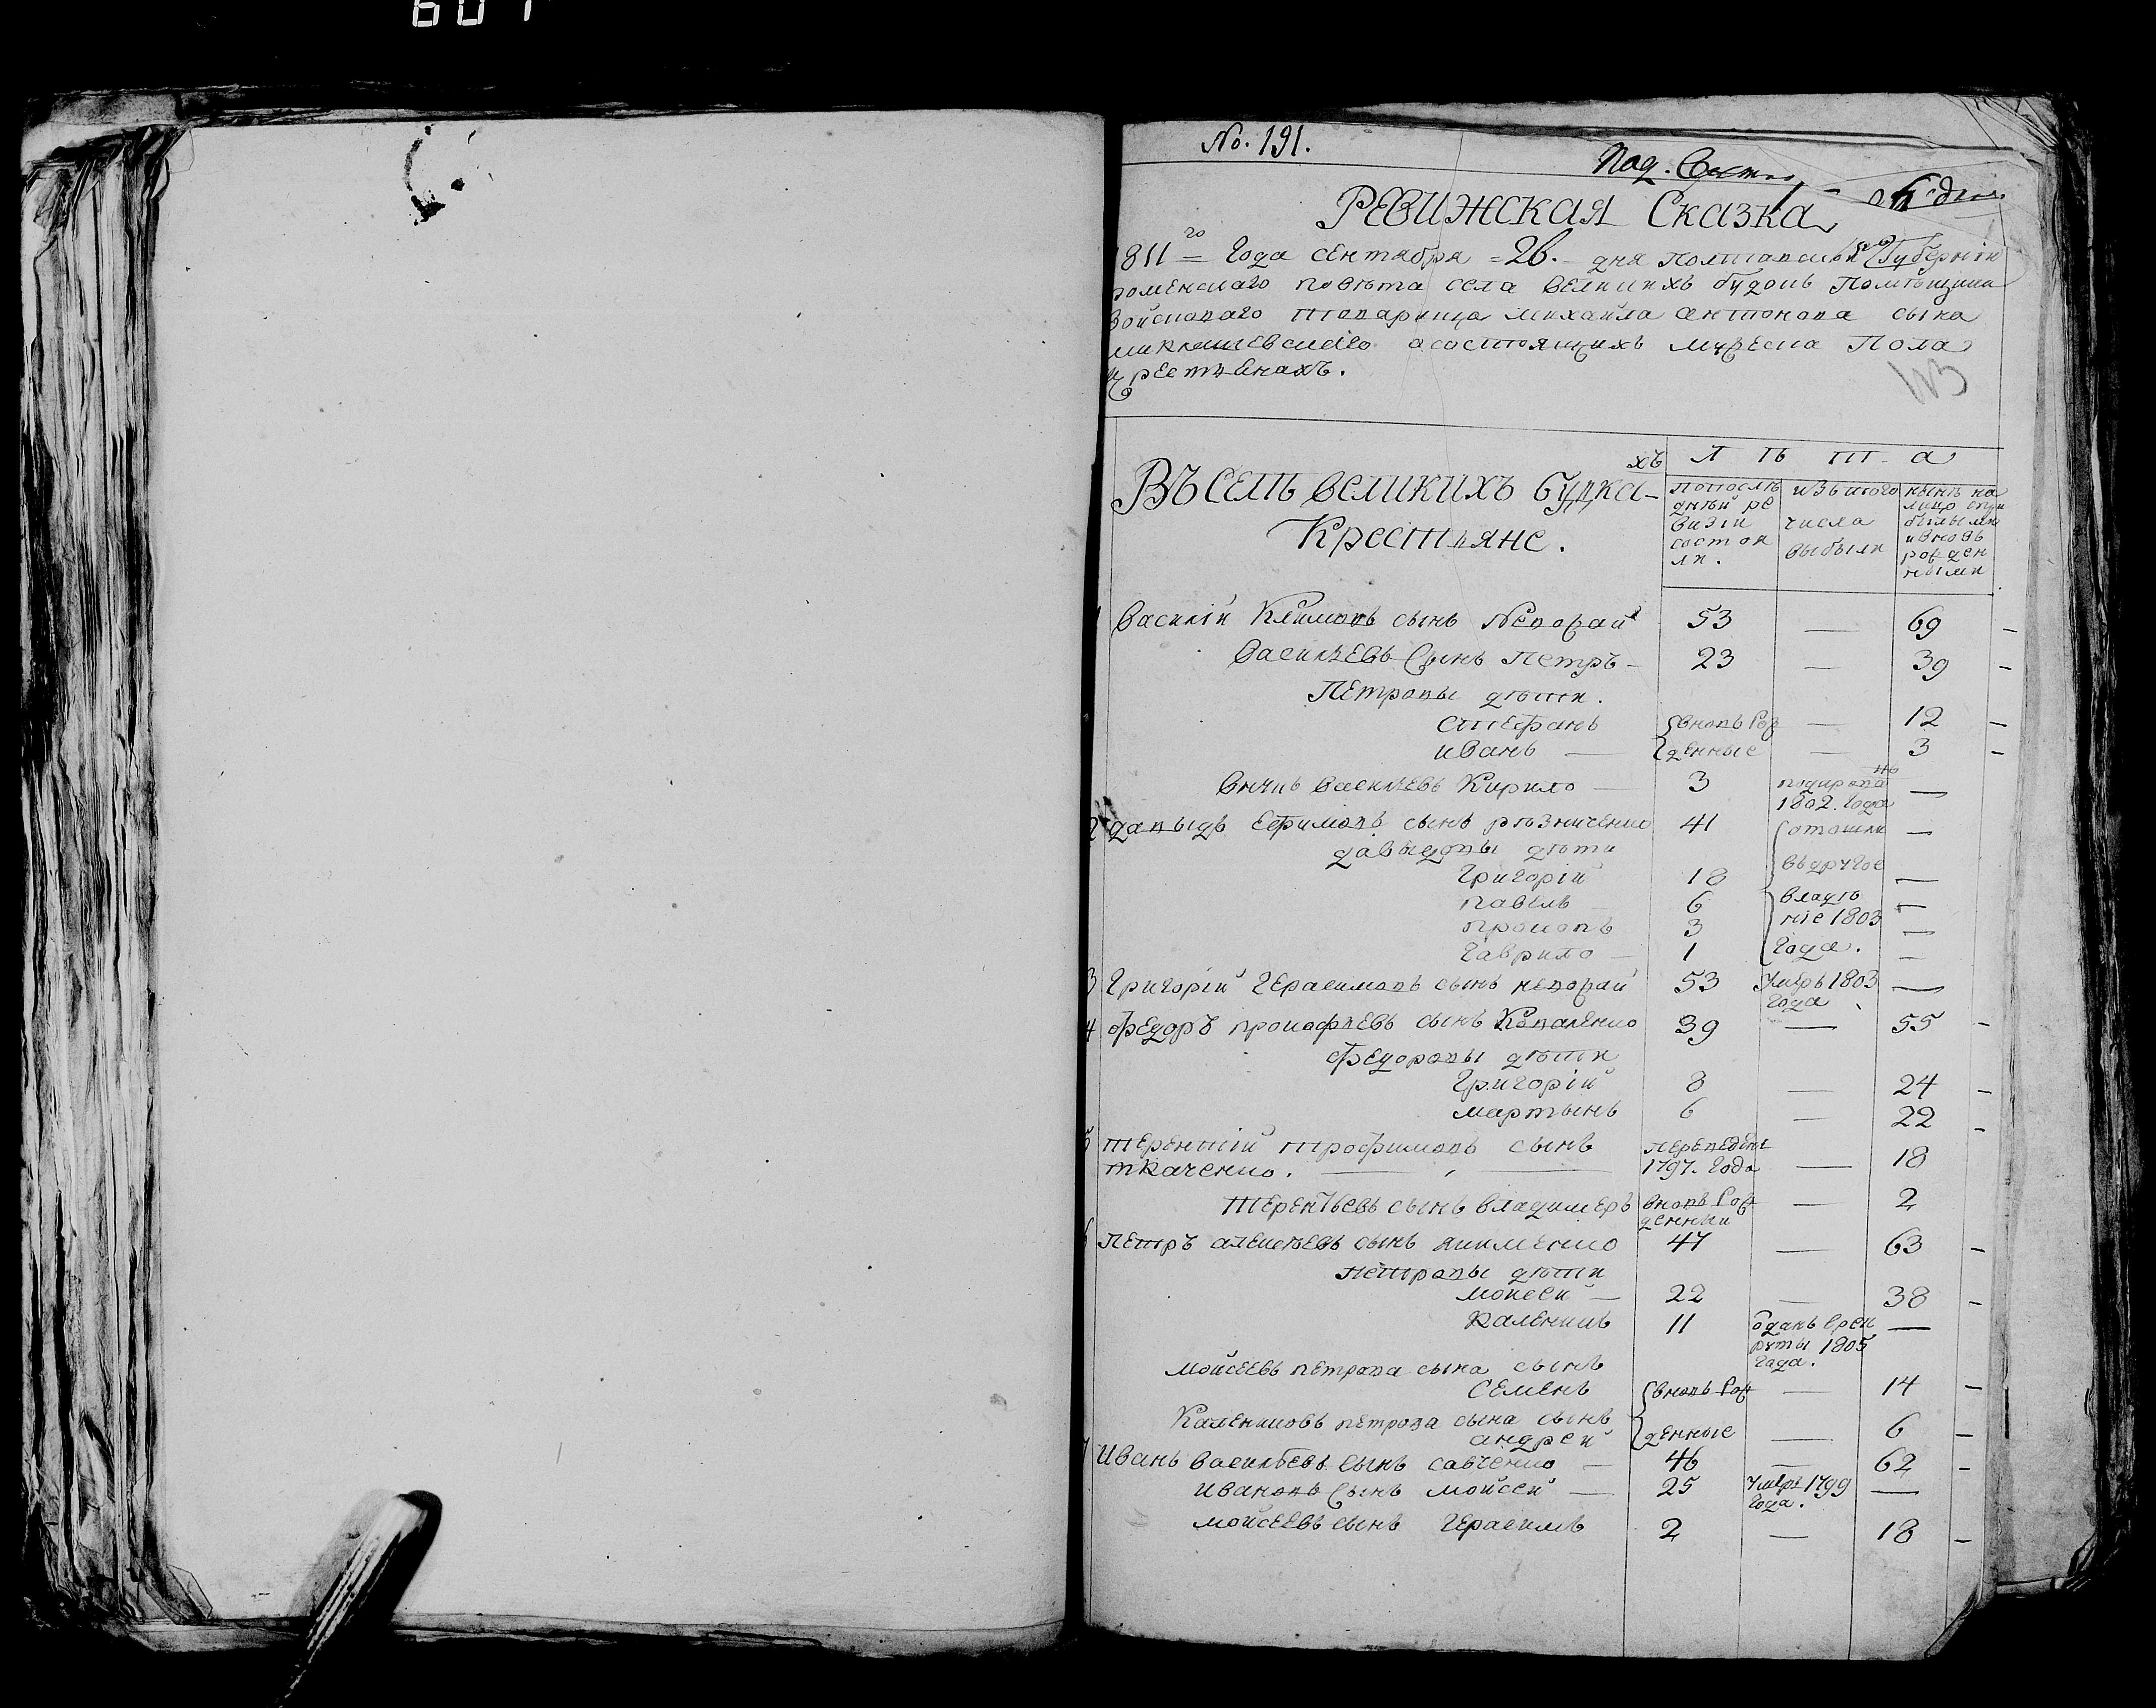 607
No. 191.
РЕВИЖСКАЯ Сказка
1811го Года сентября 26. дня Полтавской Губернiи
роменскаго повѣта села великихъ будокъ Помѣщика
Войсковаго товарища михайла антонова сына
о состоящихъ мужеска Пола
крестьянахъ.
Въ селѣ великихъ будка-
хъ
Крестьяне.
Л ѣ т а
попослѣ
дней ре
визiи
состоя
ли.
изътого
числа
выбыли
нынѣ на
лицо
ивновь
рожден
ными
1 Василiй Климовъ сынъ Непожай 53 — 69 —
Васильевъ Сынъ Петръ — 23 — 39 —
Петровы дѣти.
стефанъ вновь Рож — 12 —
иванъ — денные — 3 —
Василъевъ Кирило — 3 1802. года —
2 давыдъ Ефимовъ сынъ рѣзниченко 41 отошли —
давыдовы дѣти въдругое
Григорiй 18 —
павелъ 6 владѣ —
прокопъ 3 нiе 1803 —
Гаврило — 1 Года. —
3 Григорiй Герасимовъ сынъ непожай 53 умеръ 1803 Года —
4 федоръ прокофьевъ сынъ Коваленко 39 — 55 —
федоровы дѣти
Григорiй 8 — 24 —
мартынъ 6 — 22 —
5 терентiй трофимовъ сынъ
ткаченко. 1797. Года — 18
терентьевъ сынъ владимеръ вновь Рож денный — 2
6 Петръ алексѣевъ сынъ якименко 47 — 63 —
петровы дѣти
мойсей — 22 — 38 —
каленикъ 11 отданъ врек руты 1805 года. —
мойсеевъ петрова сына сынъ
семенъ вновь Рож — 14 —
Калениковъ петрова сына сынъ
андрей денные — 6 —
7 Иванъ васильевъ сынъ савченко — 46 — 62 —
ивановъ Сынъ мойсей — 25 умеръ 1799 Года. —
мойсеевъ сынъ Герасимъ 2 — 18 —